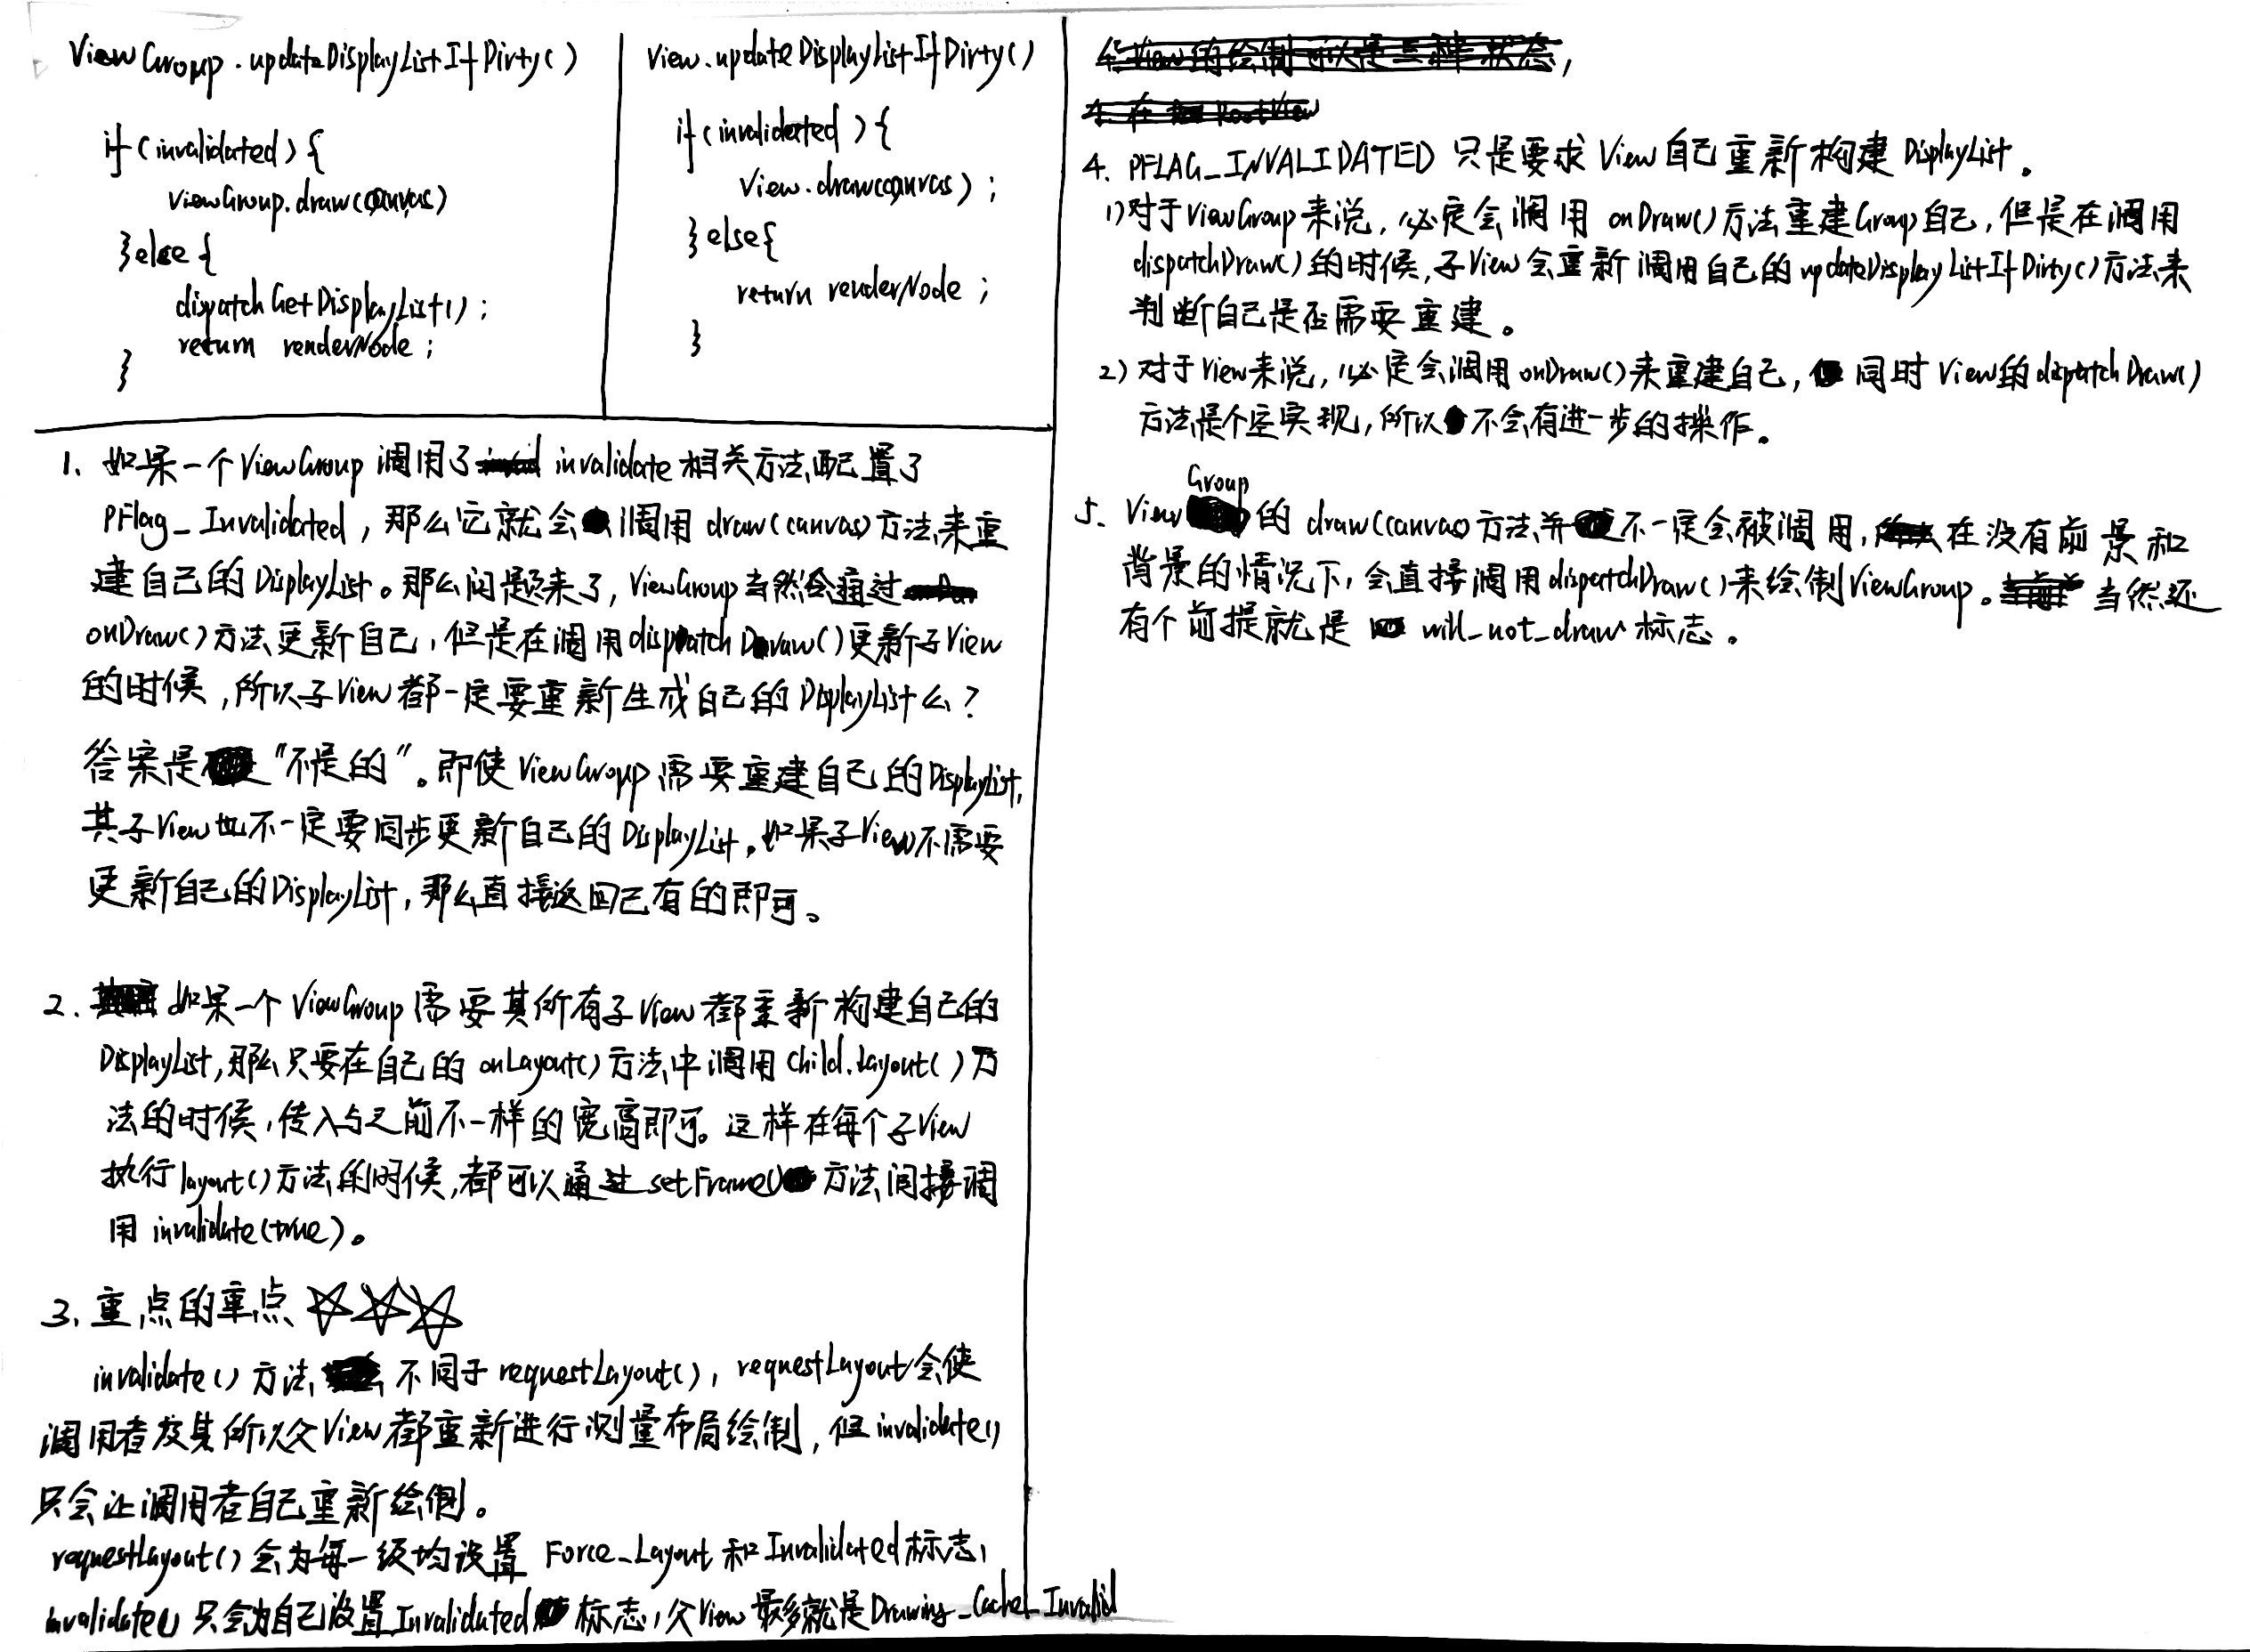 ViewGroup.updateDisplayListIfDirty()
if (invalidated) {
ViewGroup.draw(canvas)
}else {
dispatchGetDisplayList();
return renderNode;
}
View.updateDisplayListIfDirty()
if (invalidated) {
View.draw(canvas);
}else{
return renderNode;
}
1. 如果一个ViewGroup 调用了 invalidate 相关方法,配置了
PFlag_Invalidated, 那么它就会调用 draw(canvas)方法来重
建自己的DisplayList。那么问题来了, ViewGroup当然会通过
onDraw()方法更新自己,但是在调用dispatchDraw()更新子View
的时候,所以子View都一定要重新生成自己的DisplayList么?
答案是“不是的”。即使ViewGroup需要重建自己的DisplayList,
其子View也不一定要同步更新自己的DisplayList。如果子View不需要
更新自己的DisplayList, 那么直接返回已有的即可。
2. 如果一个ViewGroup需要其所有子View都重新构建自己的
DisplayList,那么只要在自己的onLayout()方法中调用child.layout()方
法的时候,传入与之前不一样的宽高即可。这样在每个子View
执行layout()方法的时候,都可以通过setFrame()方法间接调
用 invalidate(true)。
3. 重点的重点 ☆☆☆
invalidate() 方法 不同于 requestLayout(), requestLayout会使
调用者及其所以父View都重新进行测量布局绘制, 但invalidate()
只会让调用者自己重新绘制。
requestLayout() 会为每一级均设置 Force_Layout 和Invalidated标志,
invalidate() 只会为自己设置Invalidated标志,父View最多就是Drawing_Cache_Invalid
4. View的绘制可以是三种状态,
4. 在 RootView
4. PFLAG_INVALIDATED 只是要求 View自己重新构建 DisplayList。
1) 对于ViewGroup来说, 必定会调用 onDraw()方法重建Group自己, 但是在调用
dispatchDraw()的时候,子View会重新调用自己的updateDisplayListIfDirty()方法来
判断自己是否需要重建。
2) 对于View来说, 必定会调用onDraw()来重建自己, 同时View的dispatchDraw()
方法是个空实现, 所以不会有进一步的操作。
5. ViewGroup的 draw(canvas)方法并不一定会被调用, 在没有前景和
背景的情况下, 会直接调用dispatchDraw()来绘制ViewGroup。当然还
有个前提就是 will_not_draw 标志。